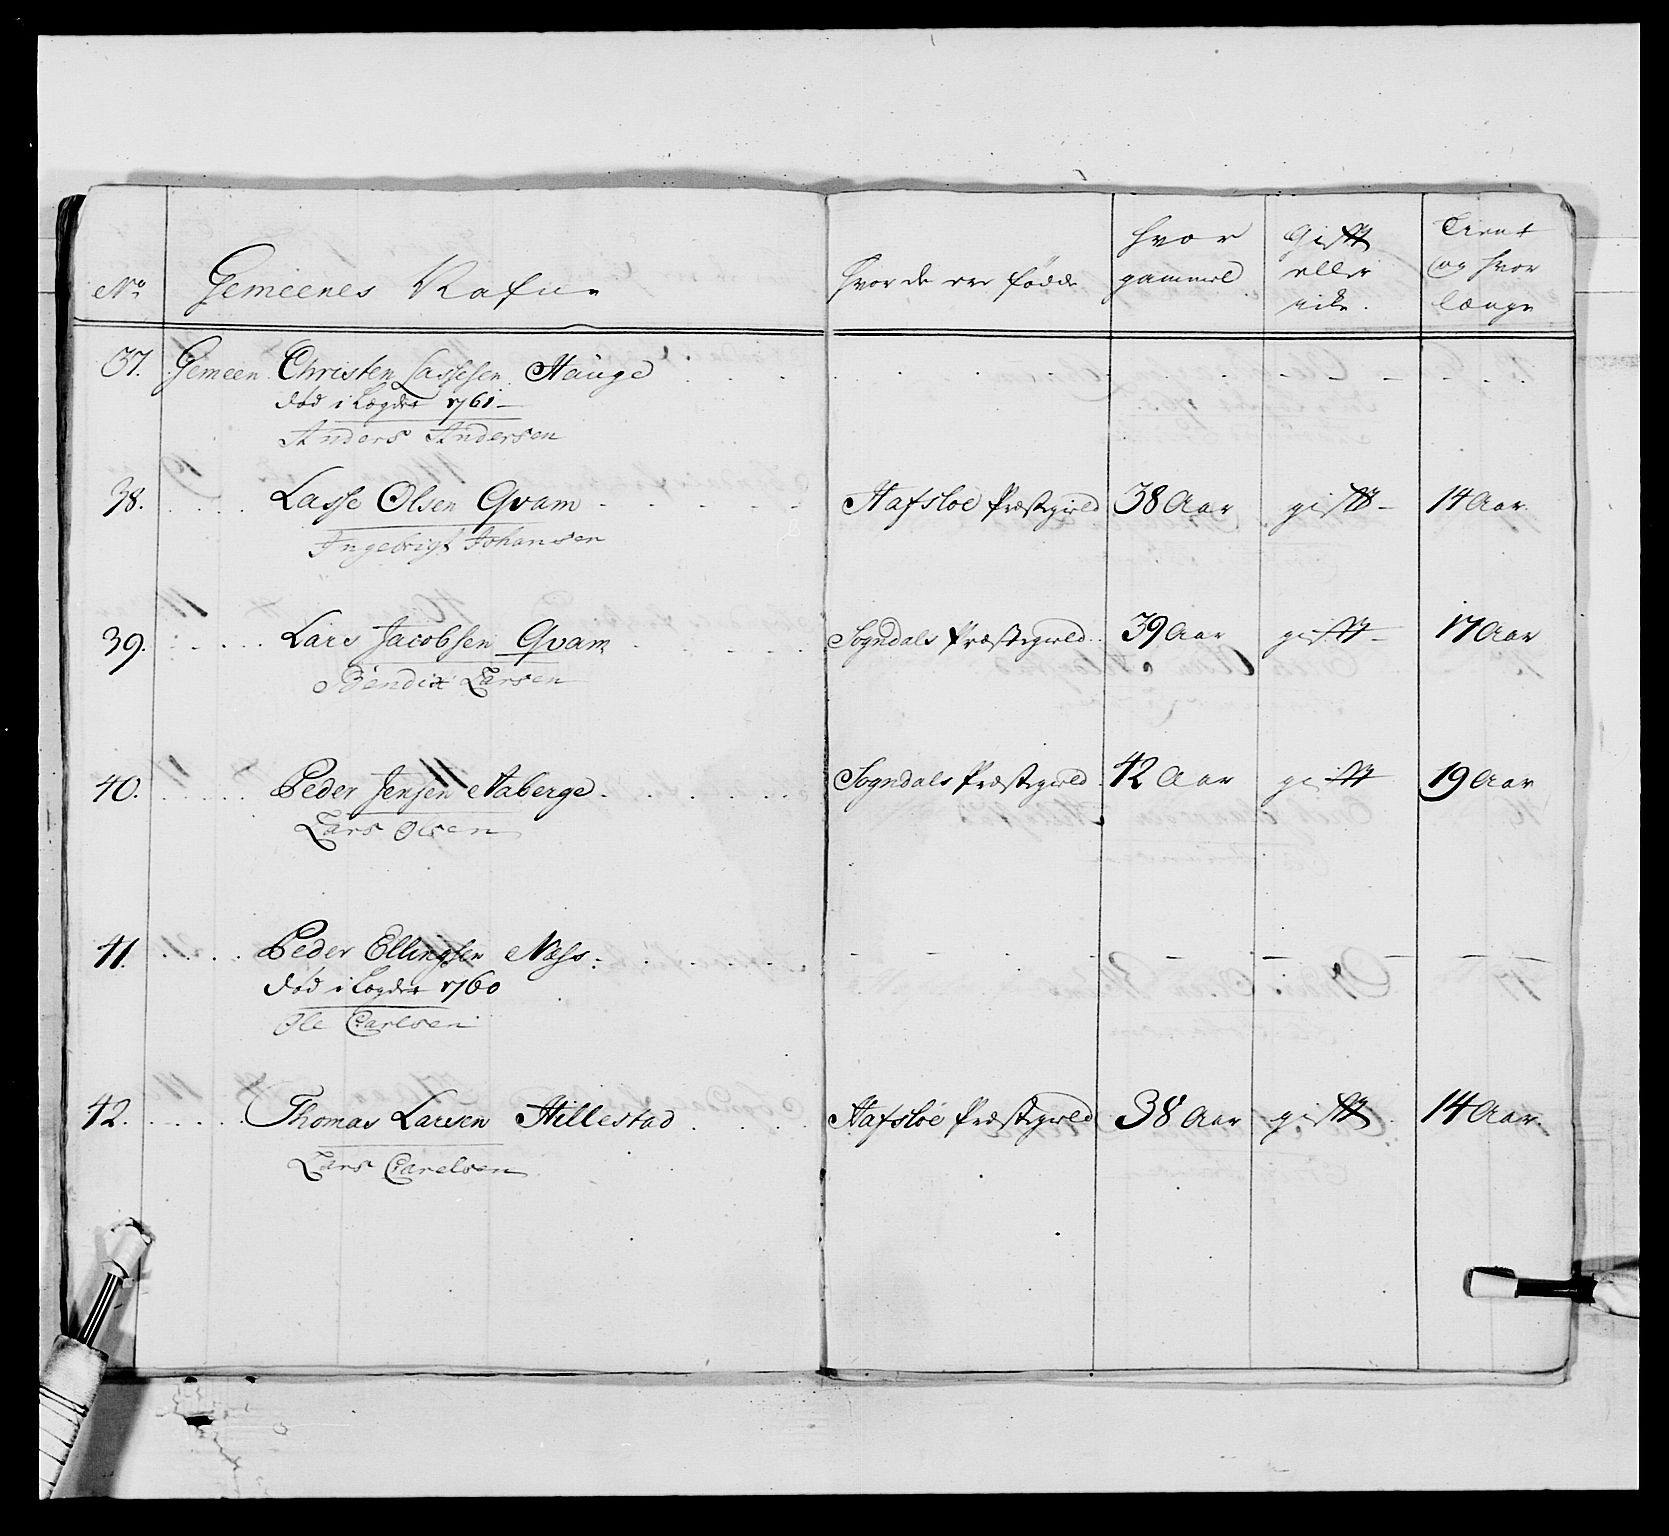 No Gemeenes Nafne hvor de ere fødde hvor gammel Gift eller eike. Tient og hvor længe
37. Gemeen Christen Lassesen Hauge
død i Lægdet 1761
Anders Andersen
38. Lasse Olsen Qvam Hafsloe Præstegield 38 Aar gift 14 Aar
Ingebrigt Johansen
39. Lars Jacobsen Qvam Sogndals Præstegield 39 Aar gift 17 Aar
Bendix Larsen
40. Peder Jensen Aaberge Sogndals Præstegield 42 Aar gift 19 Aar
Lars Olsen
41. Peder Ellingsen Næss
død i Lægdet 1760
Ole Carlsen
42. Thomas Larsen Hillestad Hafsloe Præstegield 38 Aar gift 14 Aar
Lars Carelsen